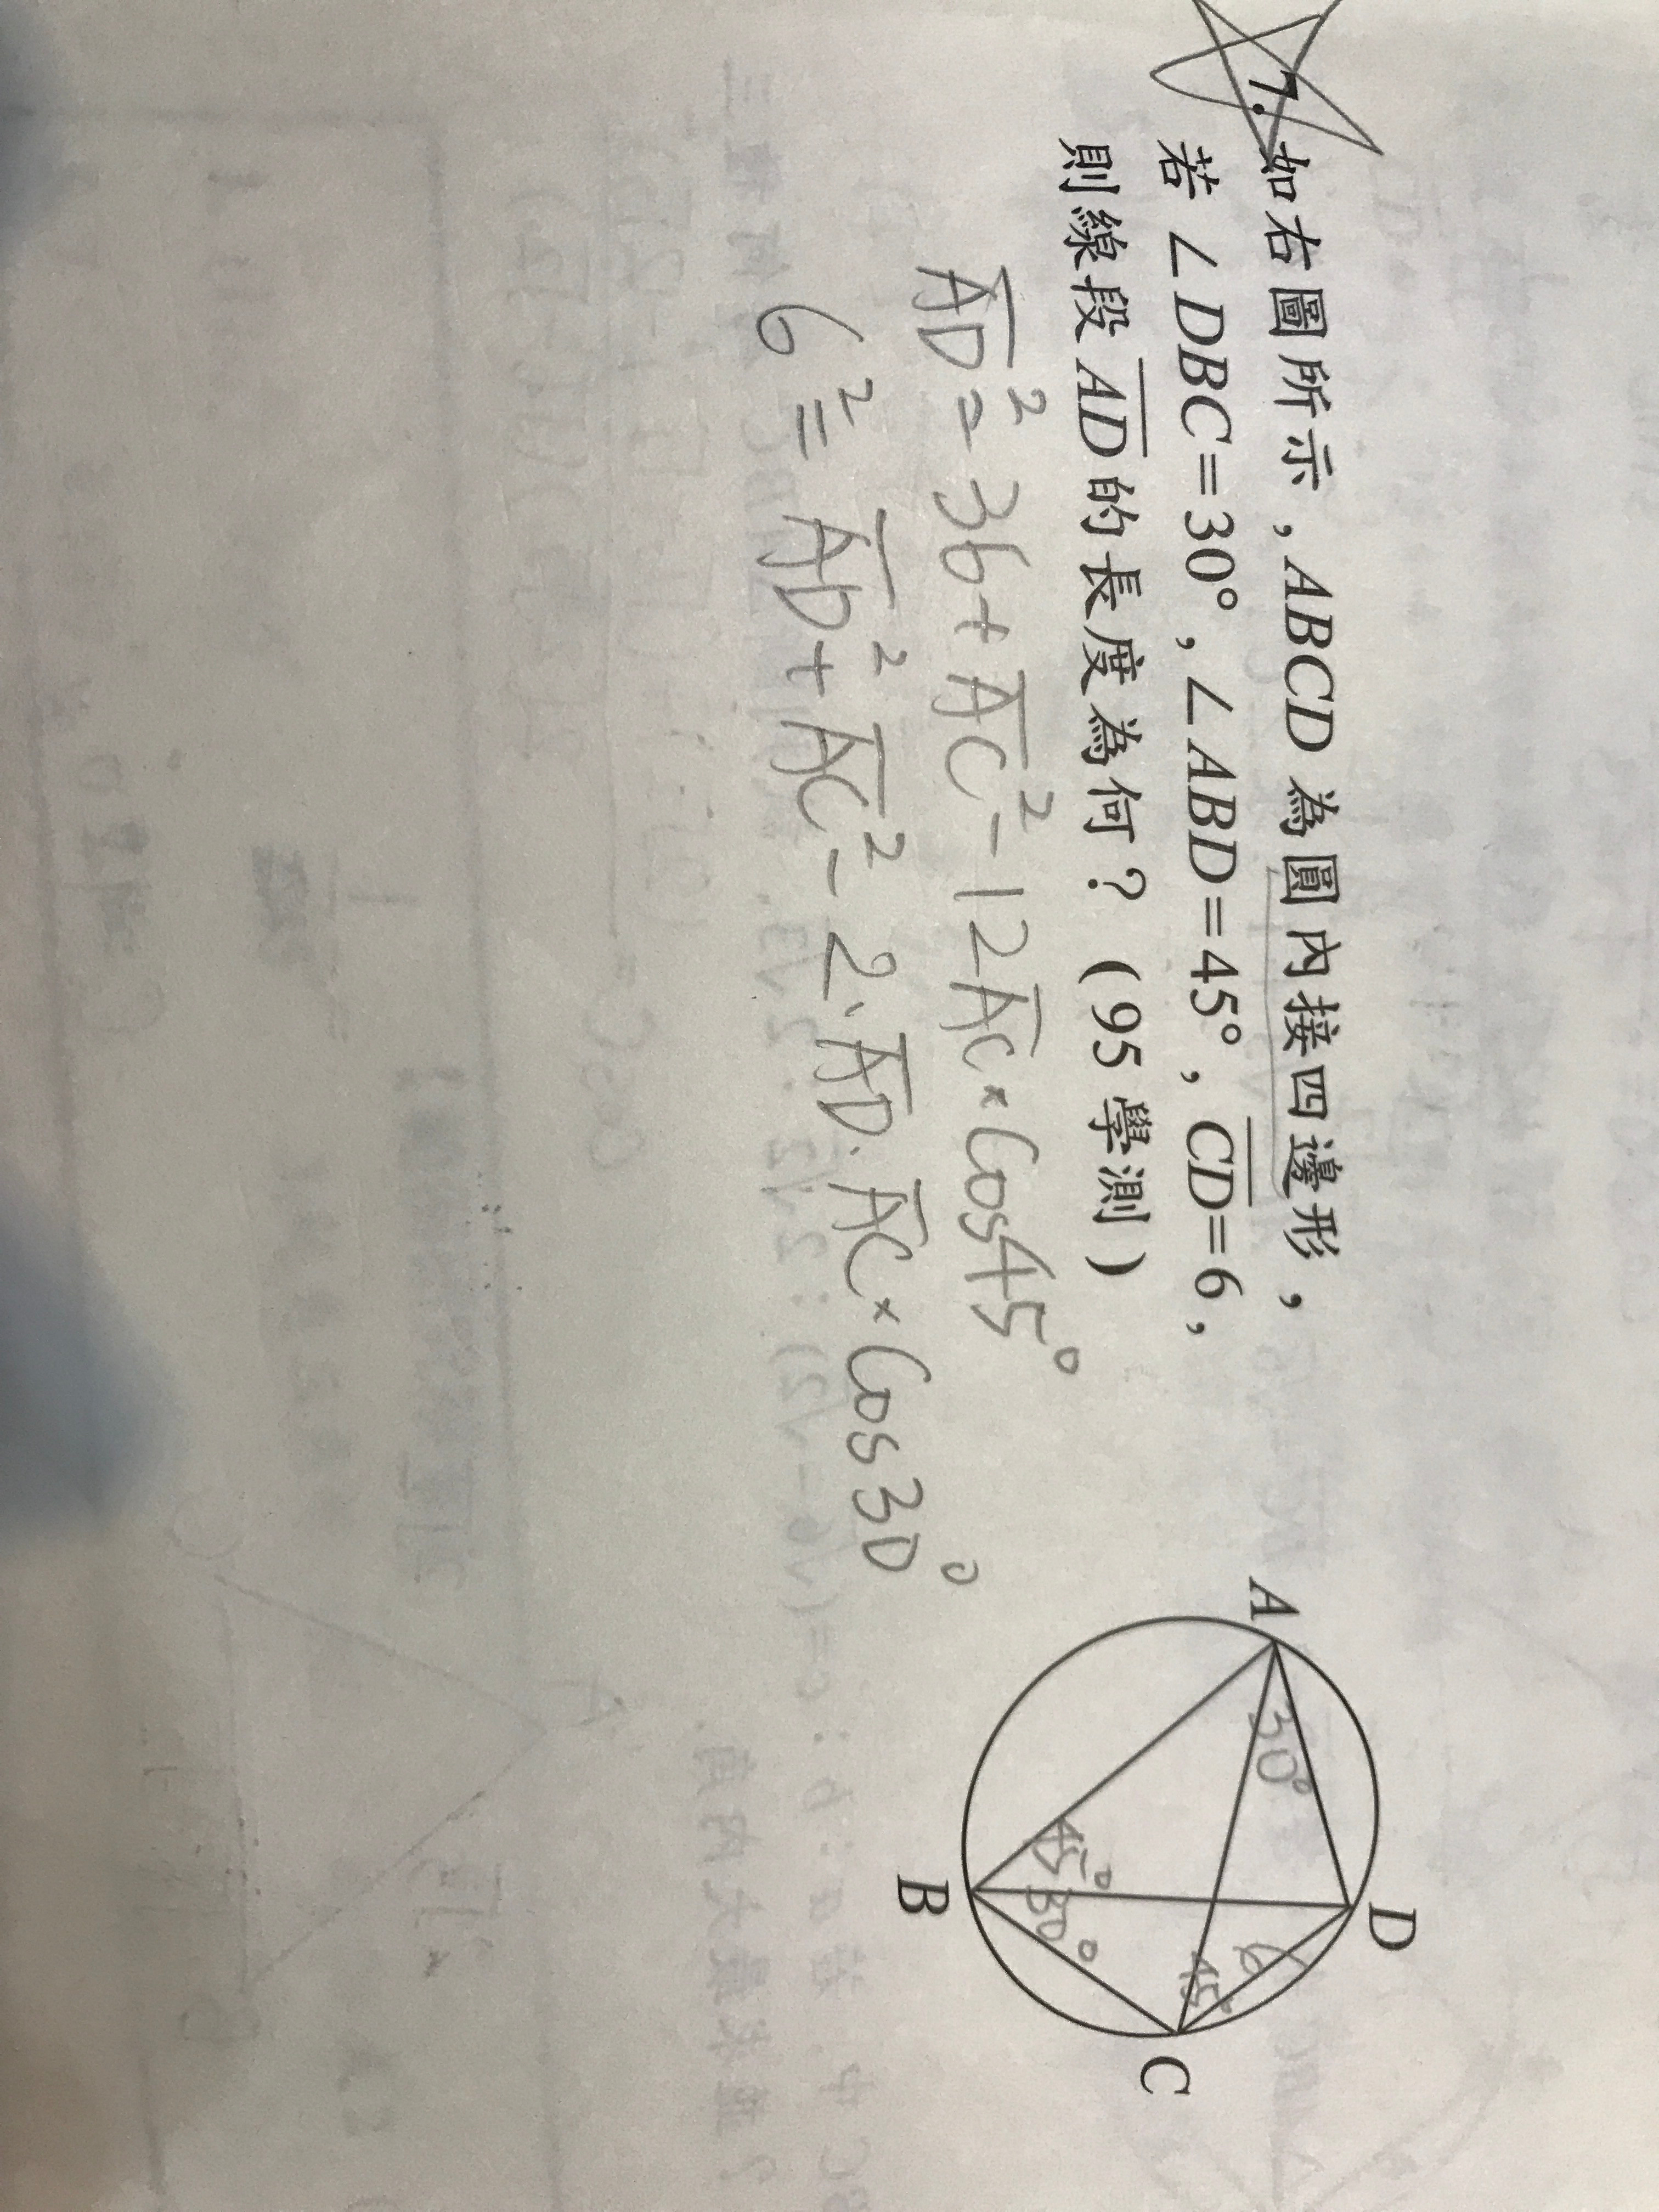 7. 如右圖所示，ABCD 為圓內接四邊形，
若∠DBC=30°，∠ABD=45°，CD=6，
則線段 AD 的長度為何？（95 學測）
AD²=36+AC²-12AC×Cos45°
6²=AD²+AC²-2·AD·AC×Cos30°
A
D
30°
6
45°
45°
30°
B
C